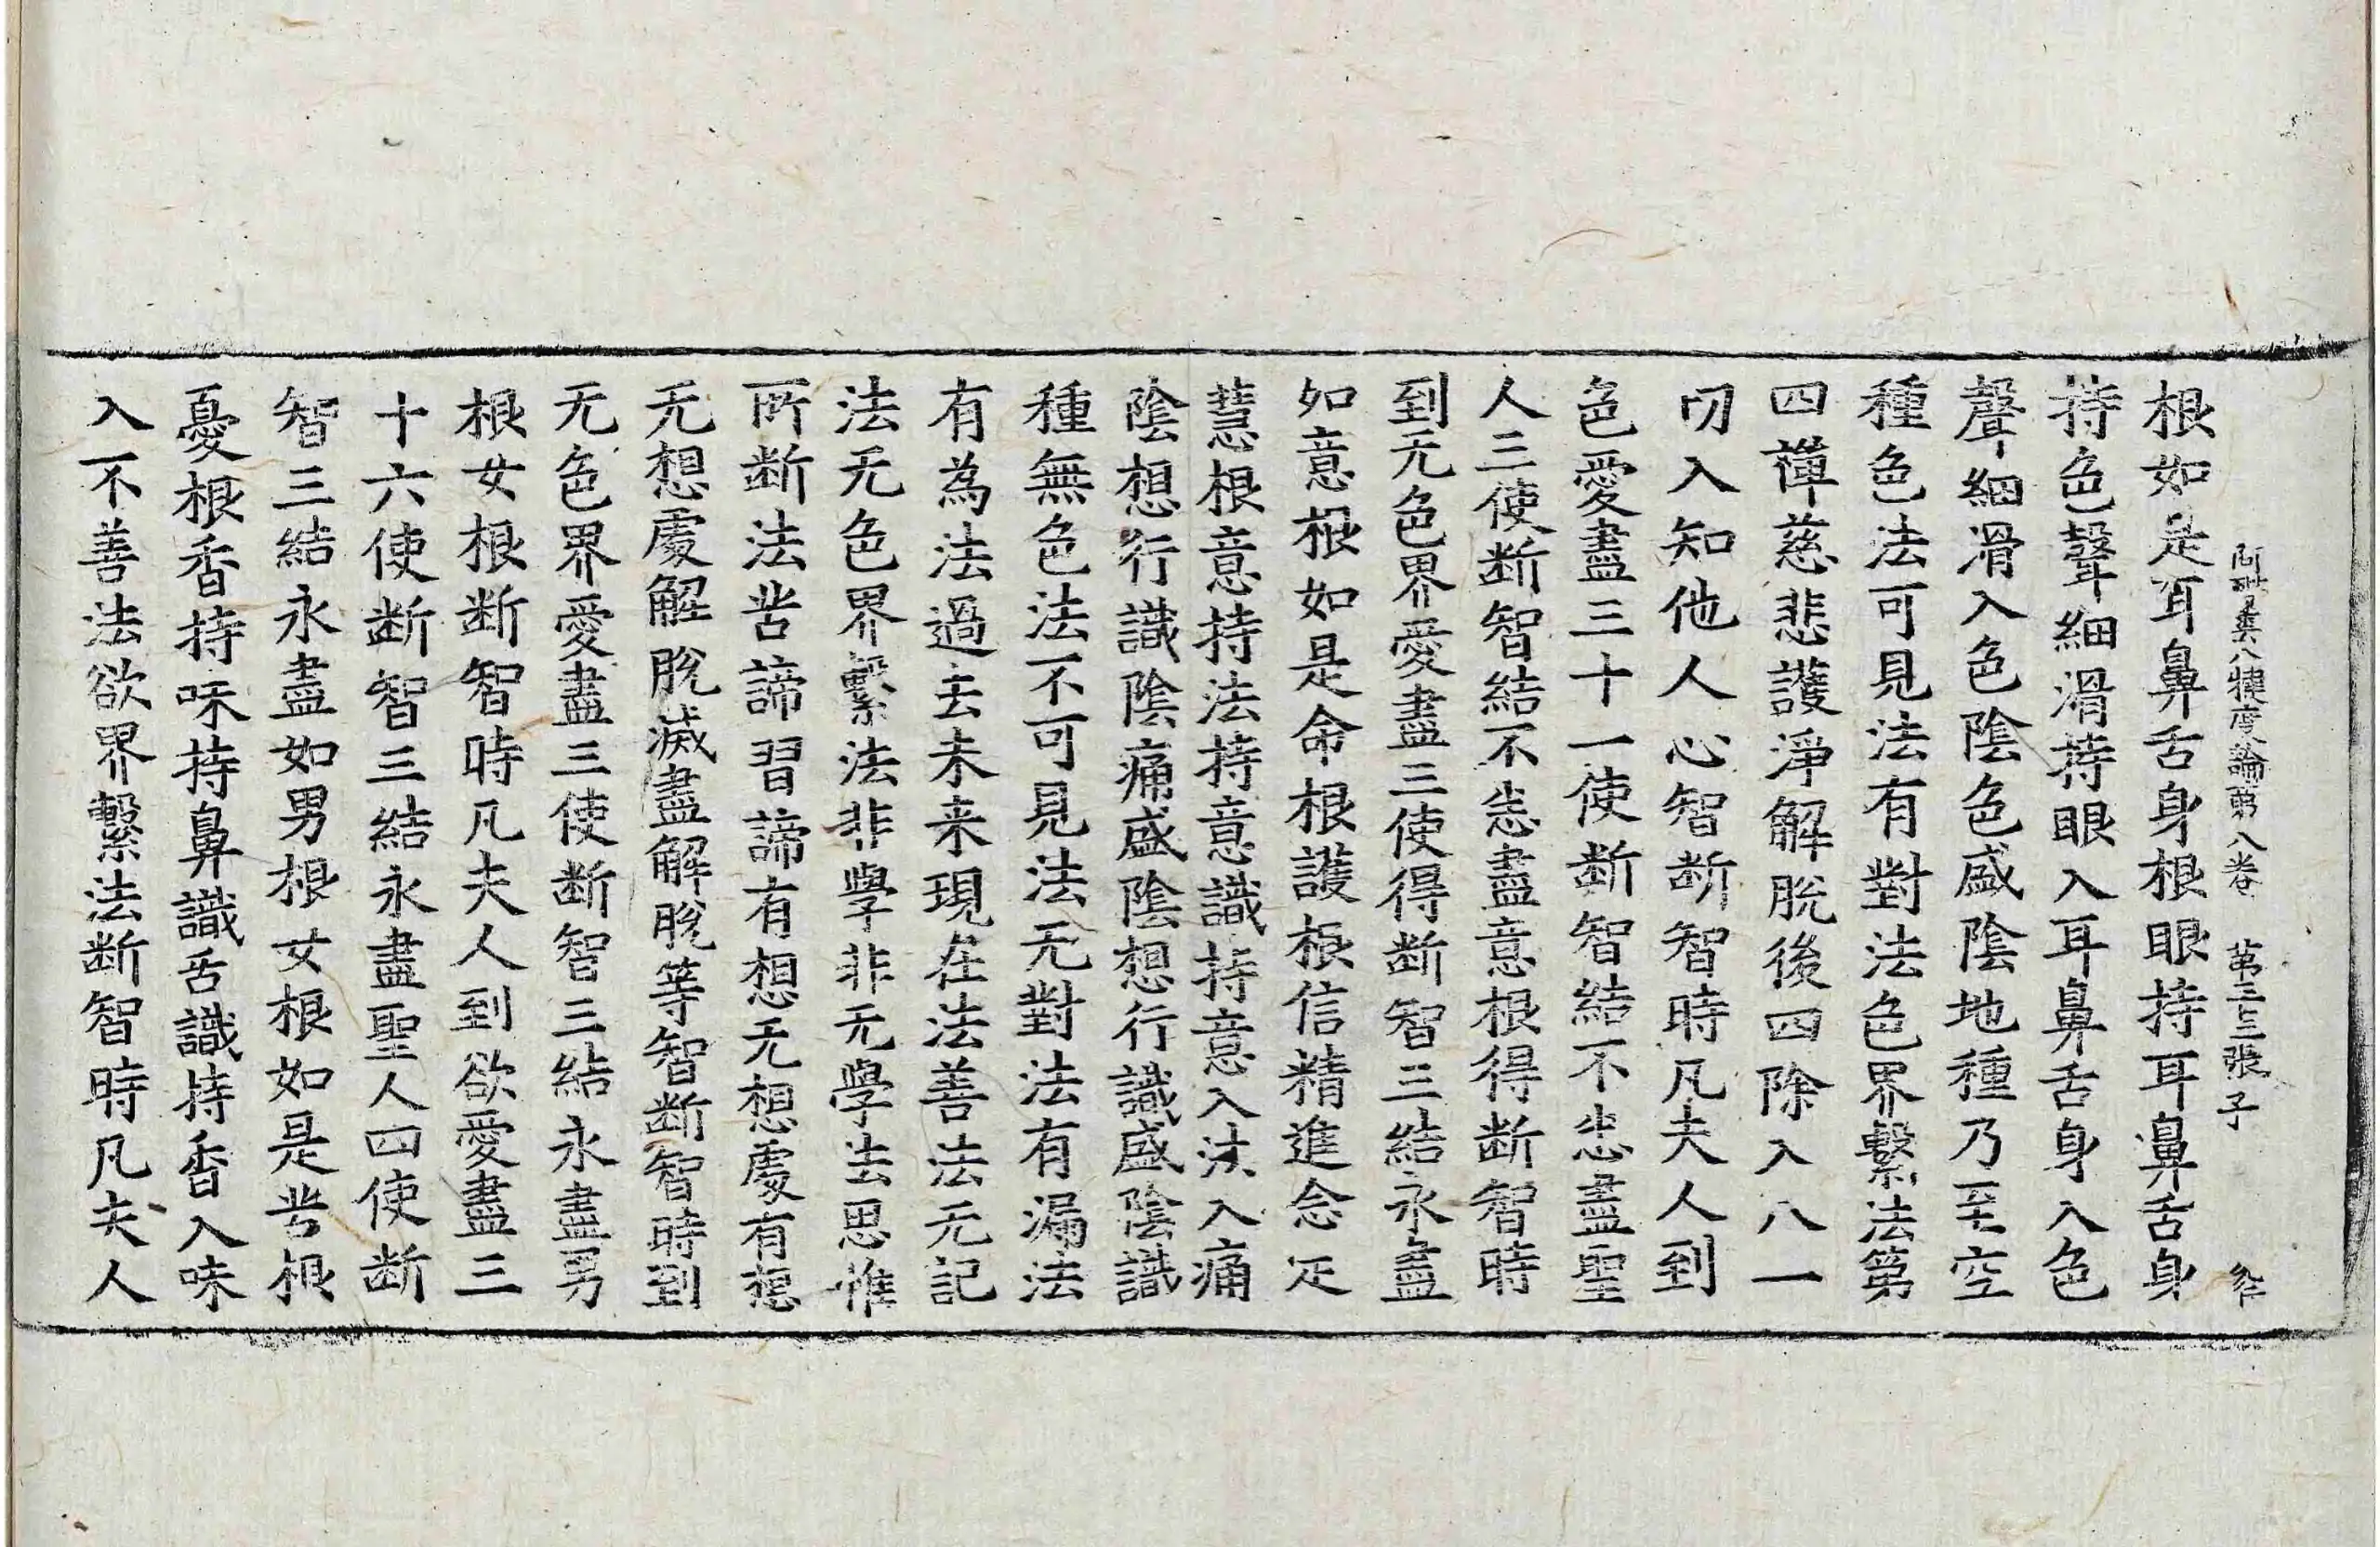 阿毗曇八犍度論第八卷 第三十三張 子
根如是耳鼻舌身根眼持耳鼻舌身
持色聲細滑持眼入耳鼻舌身入色
聲細滑入色陰色盛陰地種乃至空
種色法可見法有對法色界繫法第
四禪慈悲護淨解脫後四除入八一
切入知他人心智斷智時凡夫人到
色愛盡三十一使斷智結不恙盡聖
人三使斷智結不恙盡意根得斷智時
到无色界愛盡三使得斷智三結永盡
如意根如是命根護根信精進念定
慧根意持法持意識持意入法入痛
陰想行識陰痛盛陰想行識盛陰識
種無色法不可見法无對法有漏法
有為法過去未来現在法善法无記
法无色界繫法非學非无學法思惟
所斷法苦諦習諦有想无想處有想
无想處解脫滅盡解脫等智斷智時到
无色界愛盡三使斷智三結永盡男
根女根斷智時凡夫人到欲愛盡三
十六使斷智三結永盡聖人四使斷
智三結永盡如男根女根如是苦根
憂根香持味持鼻識舌識持香入味
入不善法欲界繫法斷智時凡夫人